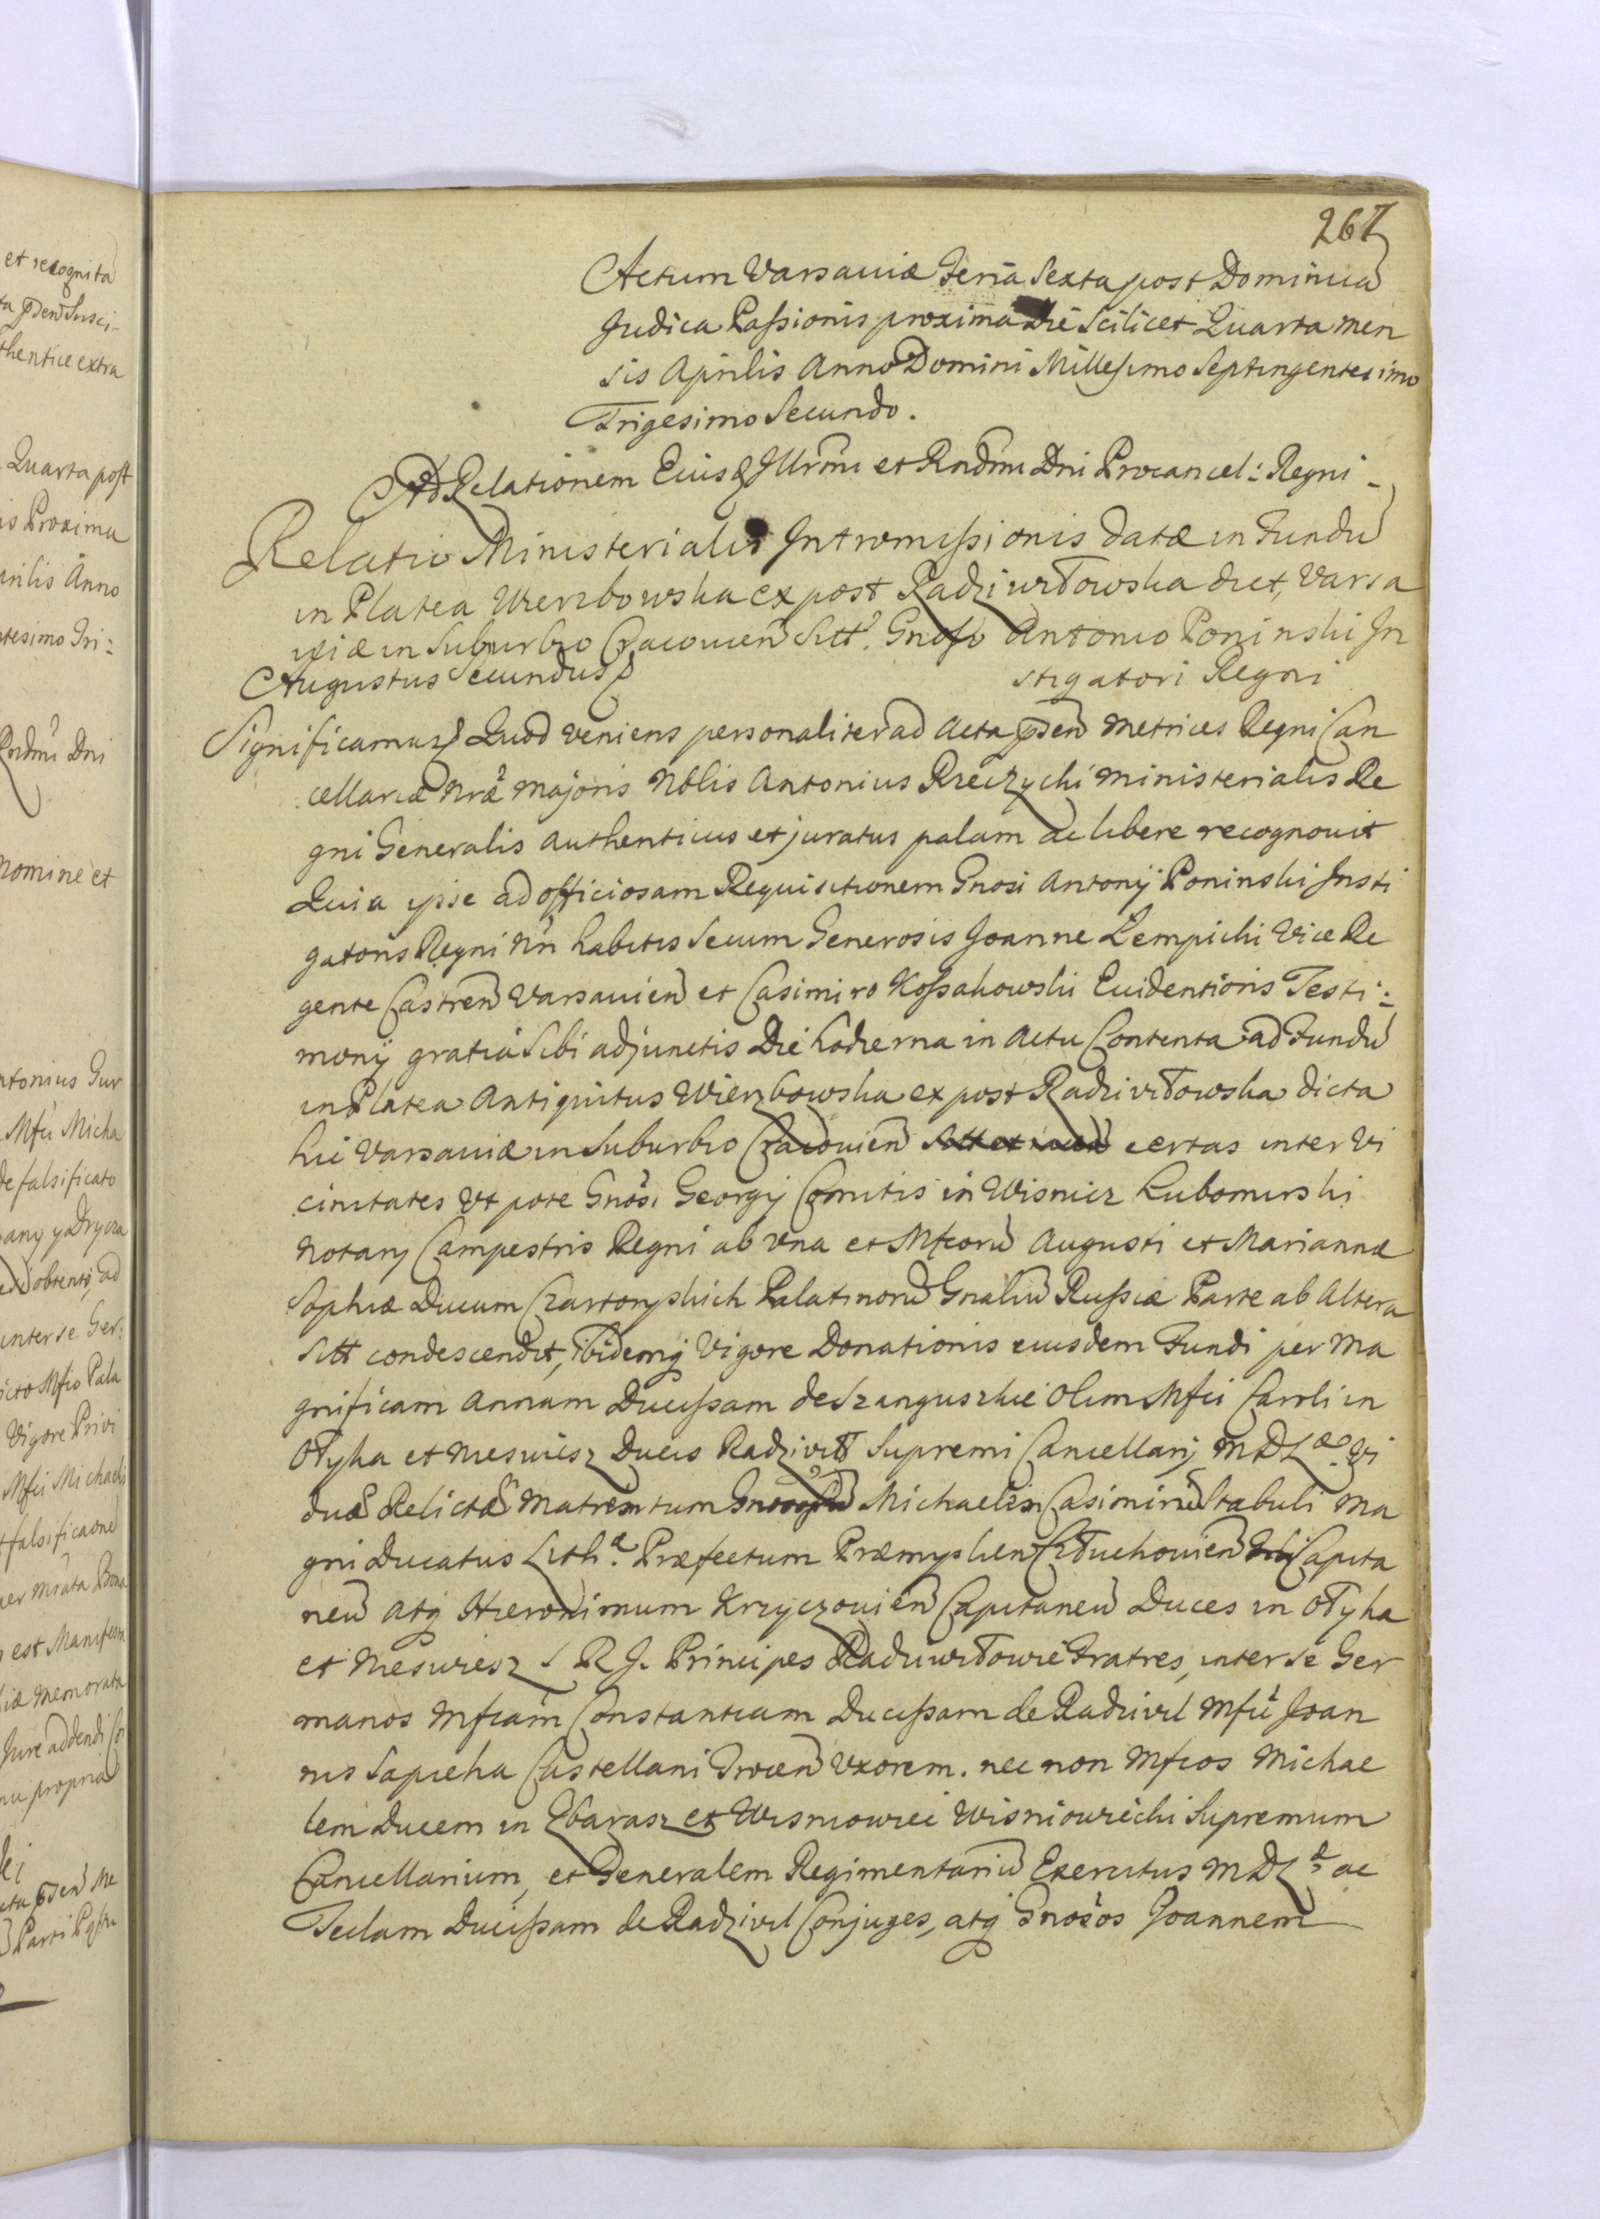 267
Actum Varsaviæ Feria Sexta post Dominicā
Judica Passionis proxima Die Scilicet Quarta men
sis Aprilis Anno Domini Millesimo Septingentesimo
Trigesimo Secundo.
Ad Relationem Eiusdem Illrmi et Rndmi Dni Procancel: Regni
Relatio Ministerialis Intromissionis datæ in Fundū
in Platea Wierzbowska ex post Radziwiłłowska dict, Varsa
viæ in Suburbio Cracovien Sitt. Gnoso Antonio Poninski In
stigatori Regni
Augustus Secundus
Significamus Quod veniens personaliter ad Acta pñden Metrices Regni Can
cellariæ Nræ Majoris Nblis Antonius Rzeczycki Ministerialis Re
gni Generalis authenticus et juratus palam ac libere recognovit
Quia ipse ad officiosam Requisitionem Gnosi Antonij Poninski Insti
gatoris Regni Nri habitis Secum Generosis Joanne Lempicki Vice Re
gente Castren Varsavien et Casimiro Kossakowski Evidentioris Testi:
monij gratia Sibi adjunctis Die hodierna in Actu Contenta ad Fundū
in Platea Antiquitus Wierzbowska ex post Radziwiłłowska dicta
hic Varsaviæ in Suburbio Cracovien certas inter Vi
cinitates Ut pote Gnosi Georgij Comitis in Wisnicz Lubomirski
Notarij Campestris Regni ab una et Mfcorū Augusti et Mariannæ
Sophiæ Ducum Czartoryskich Palatinorū Gnaliū Russiæ Parte ab Altera
Sitt condescendit, ibidemq Vigore Donationis eiusdem Fundi per Ma
gnificam Annam Ducissam de Szanguszkie Olim Mfci Caroli in
Ołyka et Nieswiesz Ducis Radziwiłł Supremi Cancellarij M D L Vi
duā Relictā Matrem tum Michaelem Casimirū Stabuli Ma
gni Ducatus Lith. Præfectum Præmyslien Człuchovien Capita
neū Atq Hieronimum Krzyczovien Capitaneū Duces in Ołyka
et Nieswiesz S R J. Principes Radziwiłłowie Fratres, inter se Ger
manos Mfcam Constantiam Ducissam de Radziwil Mfci Joan
nis Sapieha Castellani Trocen Uxorem. nec non Mfcos Michae
lem Ducem in Zbarasz et Wisniowiec Wisniowiecki Supremum
Cancellarium, et Generalem Regimentariū Exercitus M D L ac
Teclam Ducissam de Radziwil Conjuges, atq Gnosos Joannem